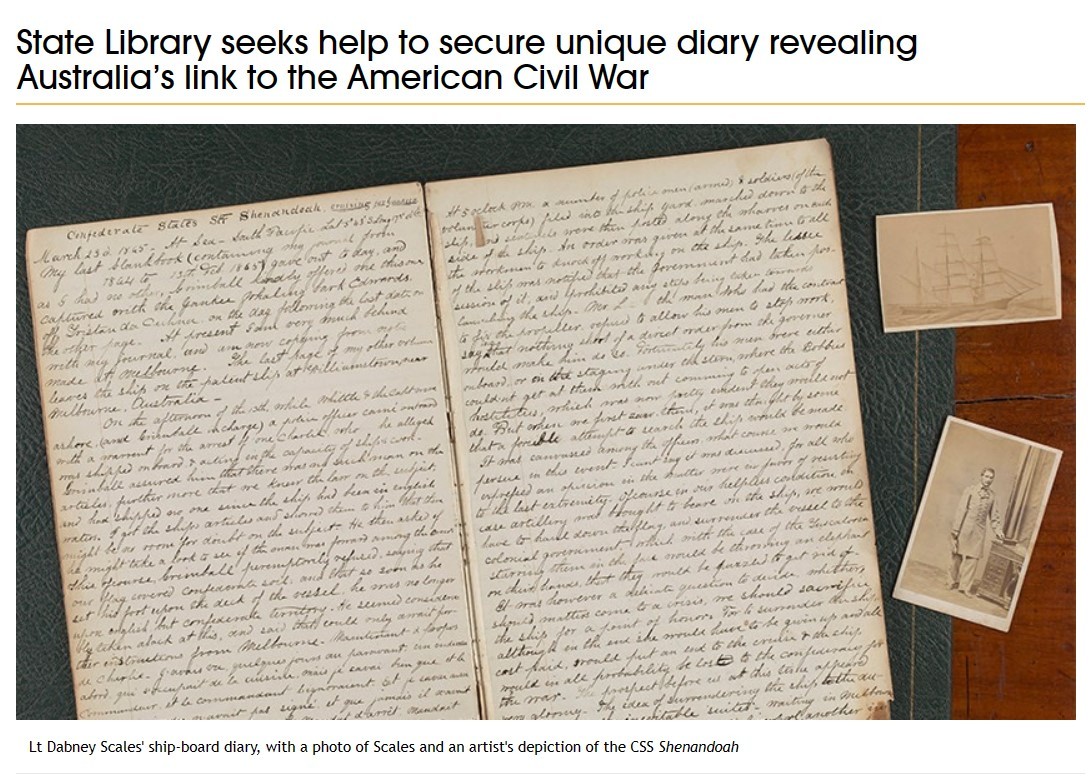 State Library seeks help to secure unique diary revealing
Australia's link to the American Civil War
Confederate States Str Shenandoah.
March 23d 1865 - At Sea - South Pacific Lat
My last blankbook (containing my journal from
1864 to 13th Feb 1865) gave out to day, and
as I had no other, Grimball kindly offered me this one
captured with the Yankee Whaling bark Edwards.
off Tristan da Cunha, on the day following the last date on
the other page. At present I am very much behind
with my journal, and am now copying from
made at Melbourne. The last page of my other volume
leaves the ship on the patent slip at Williamstown, near
Melbourne, Australia -
On the afternoon of the while Whittle & the captn were
ashore, (and Grimball in charge) a police officer came onboard
with a warrent for the arrest of one Charlie who he alleged
was shipped onboard & acting in the capacity of ship's cook.
Grimball assured him that there was no such man on the
articles, further more that we knew the law on the subject,
and had shipped no one since the ship had been in english
waters. I got the ships articles and showed them to him that there
might be no room for doubt on the subject - He then asked if
he might take a look to see if the man was forward among the crew
This of course, Grimball peremptorily refused, saying that
our flag covered confederate soil, and that so soon as he
set his foot upon the deck of the vessel, he was no longer
upon english but confederate territory. He seemed considera
bly taken aback at this, and said that he could only await fur-
ther instructions from Melbourne. Maintenant à propos
de Charlie. J'avais vu quelques jours au paravant, un
abord, qui s'occupait de la cuisine, mais je savais bien que et le
Commandeur, et le commandant l'ignoraient. Et je savais aussi
pas signé et que jamais il
At 5 o'clock P.M. a number of police men (armed) & soldiers (of the
volunteer corps) filed into the ship yard, marched down to the
ship, and sentinels were then posted along the wharves on each
side of the ship. An order was given at the same time to all
the workmen to knock off working on the ship. The lessee
of the slip was notified that the Government had taken pos-
session of it, and prohibited any steps being taken towards
launching the ship. Mr L- the man who had the contract
to fix the propeller, refused to allow his men to stop work,
saying that nothing short of a direct order from the governor
would make him do so. Fortunately his men were either
onboard, or on the staging under the stern, where the Bobbies
couldn't get at them with out coming to open acts of
hostilities, which was now pretty evident they would not
do. But when we first saw them, it was thought by some
that a forcible attempt to search the ship would be made.
It was canvassed among the officers, what course we would
persue in this event. I cant say it was discussed, for all who
expressed an opinion in the matter were in favor of resisting
to the last extremity. Of course in our helpless condition, in
case artillery was brought to bear on the ship, we would
have to haul down the flag, and surrender the vessel to the
colonial government - which with the case of the Tuscaloosa
staring them in the face would be throwing an elephant
on their hands, that they would be puzzled to get rid of.
It was however a delicate question to decide, whether,
should matters come to a crisis, we should sacrifice
the ship for a point of honor. For to surrender the ship,
although in the end she would have to be given up and all
cost paid, would put an end to the cruise & the ship
would in all probability be lost to the confederacy for
the war. The prospect before us at this time appeared
very gloomy. The idea of surrendering the ship to the
inevitable suited. waiting in Melbourne
another
Lt Dabney Scales' ship-board diary, with a photo of Scales and an artist's depiction of the CSS Shenandoah